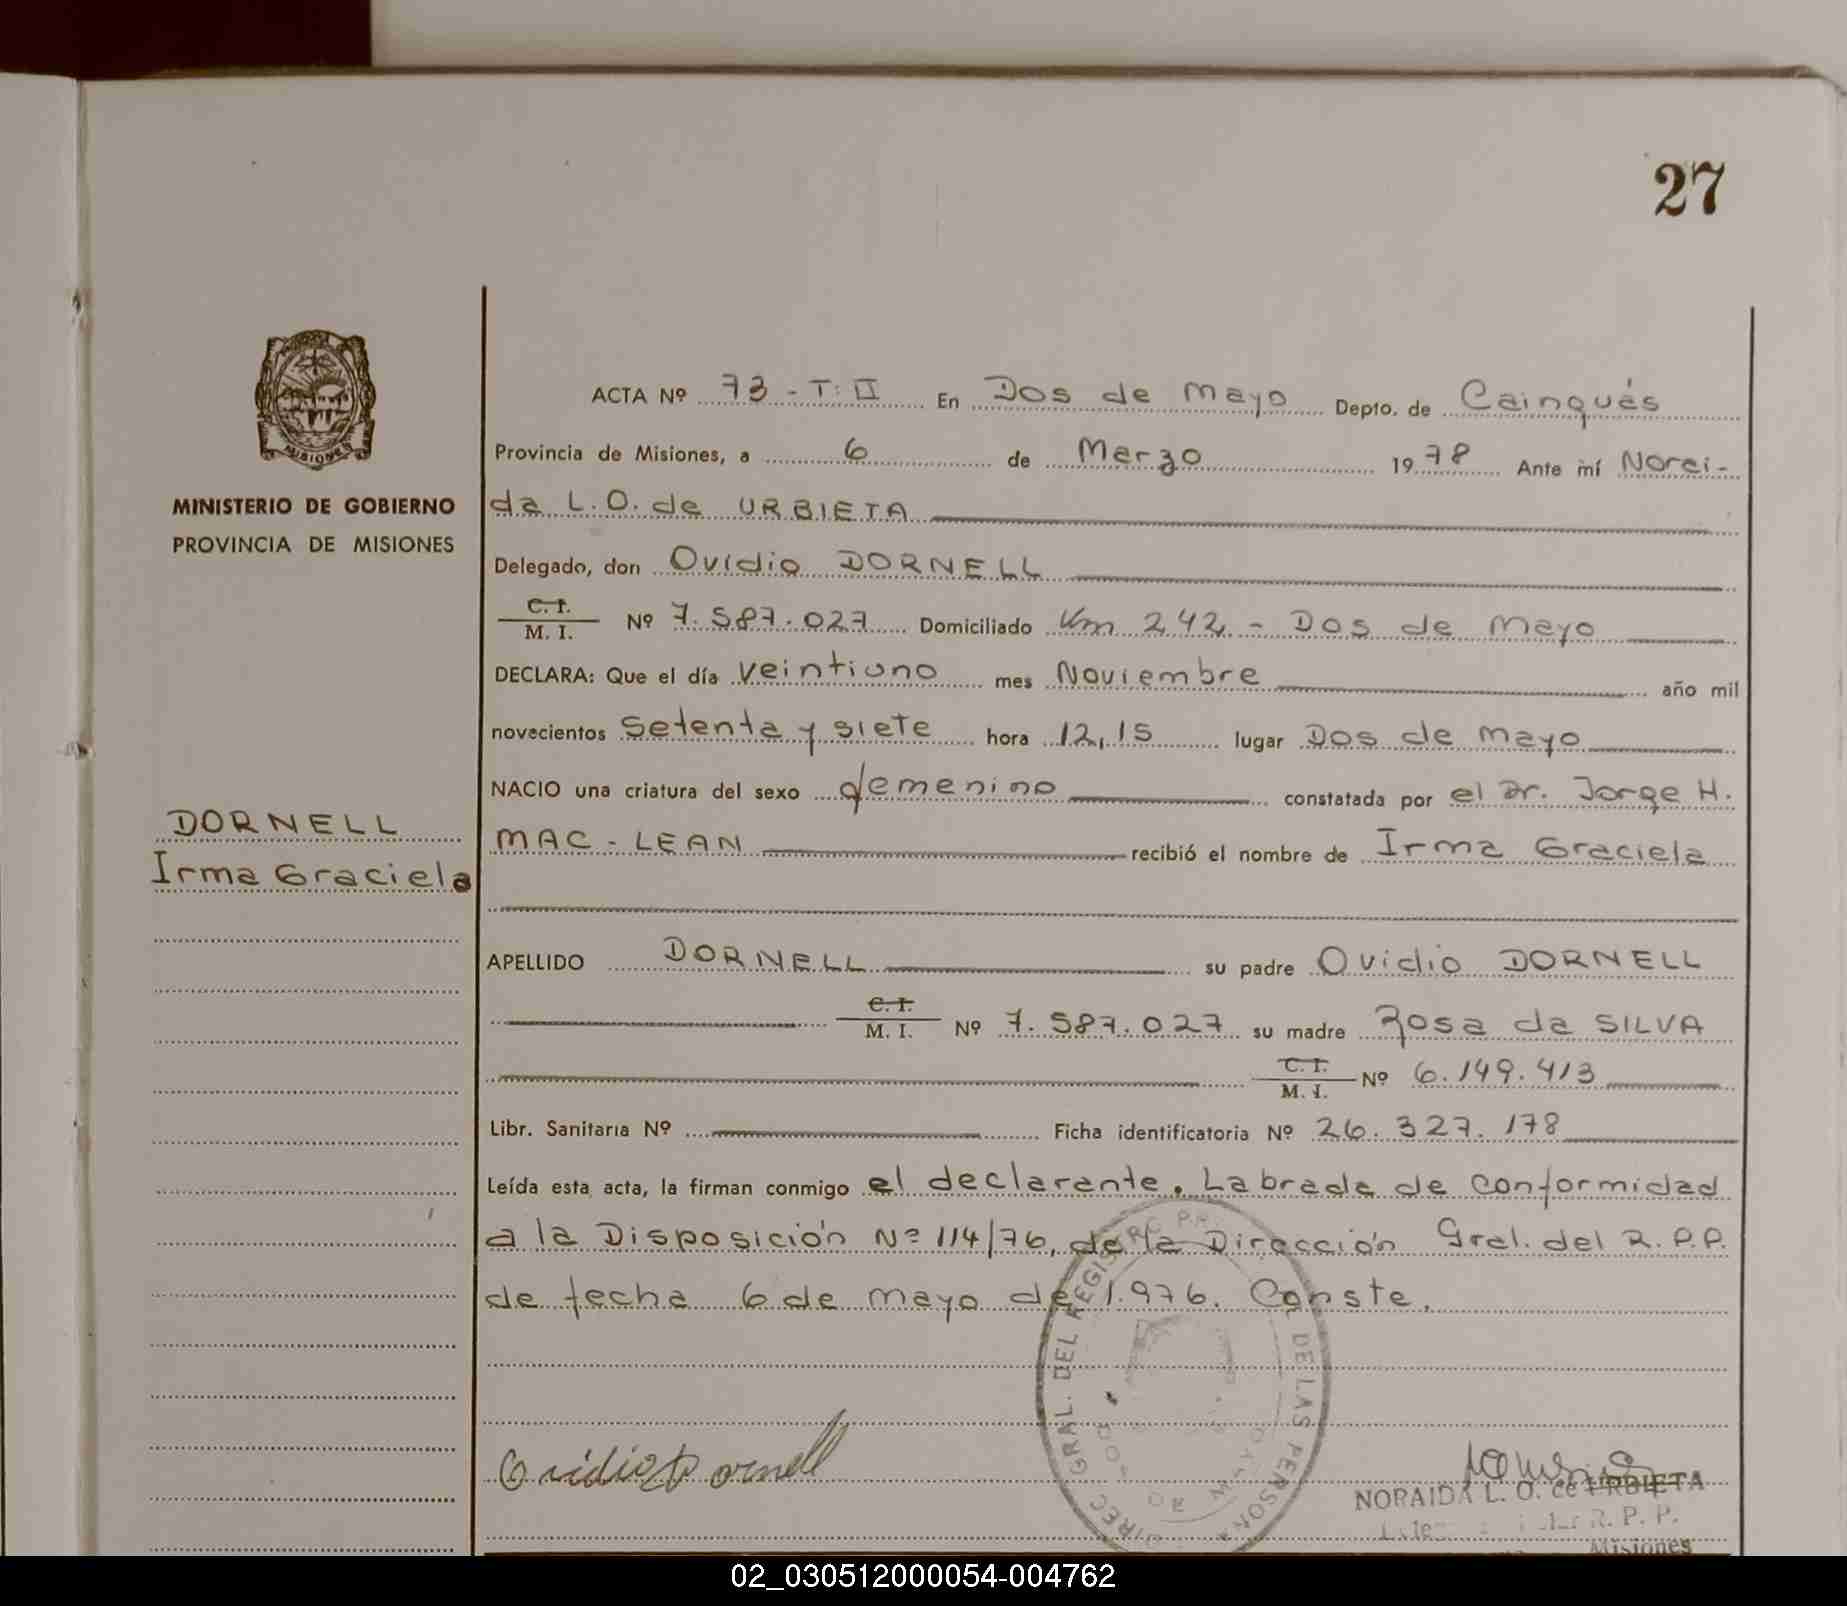 27
ACTA Nº 73 - T: II En Dos de Mayo Depto. de Cainguás
Provincia de Misiones, a 6 de Marzo 1978 Ante mí Norai-
da L. O. de URBIETA
Delegado, don Ovidio DORNELL
C. I.
M. I. Nº 7.587.027 Domiciliado Km 242 - Dos de Mayo
DECLARA: Que el día veintiuno mes Noviembre año mil
novecientos setenta y siete hora 12,15 lugar Dos de Mayo
NACIO una criatura del sexo femenino constatada por el Dr. Jorge H.
MAC - LEAN recibió el nombre de Irma Graciela
APELLIDO DORNELL su padre Ovidio DORNELL
C. I.
M. I. Nº 7.587.027 su madre Rosa da SILVA
C. I.
M. I. Nº 6.149.413
Libr. Sanitaria Nº Ficha identificatoria Nº 26.327.178
Leída esta acta, la firman conmigo el declarante. Labrada de conformidad
a la Disposición Nº 114/76, de la Dirección Gral. del R. P. P.
de fecha 6 de Mayo de 1.976. Conste.
MINISTERIO DE GOBIERNO
PROVINCIA DE MISIONES
MISIONES
DORNELL
Irma Graciela
Ovidio Dornell
DIREC. GRAL. DEL REGISTRO PR. DE LAS PERSON
DOS DE MAYO
NORAIDA L. O. de URBIETA
R. P. P.
Misiones
02_030512000054-004762